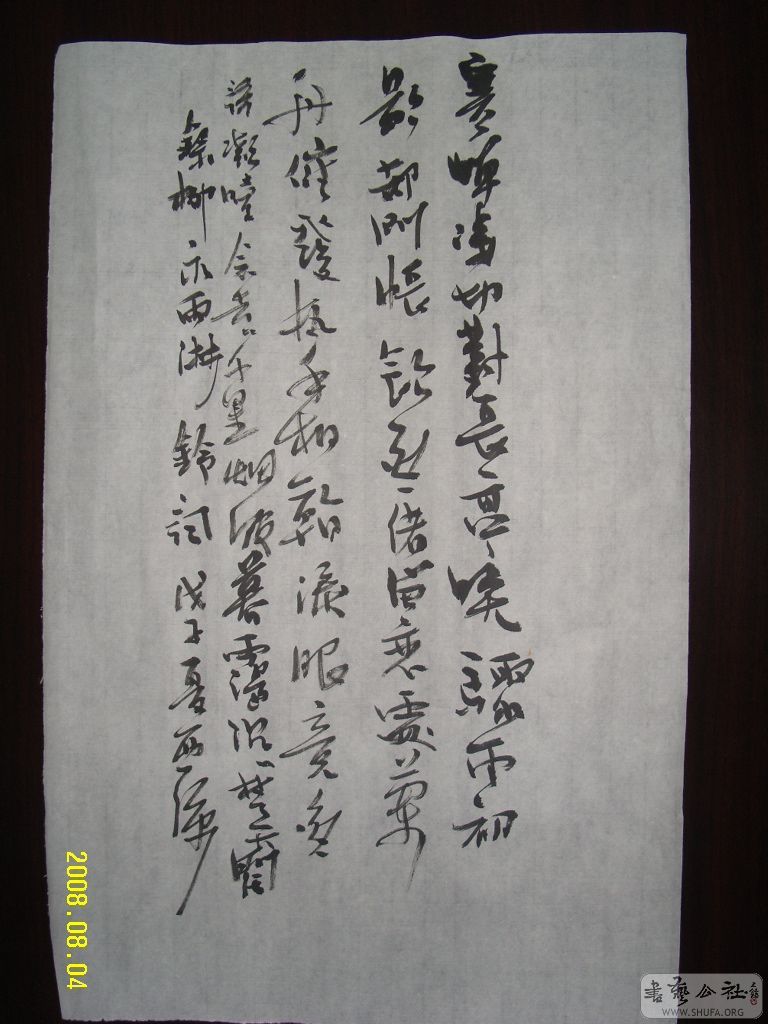 寒蟬凄切對長亭晚驟雨初
歇都門帳飲無緒留戀處蘭
舟催發執手相看淚眼竟無
語凝噎念去〻千里烟波暮靄沉〻楚天闊
錄柳永雨淋鈴詞 戊子夏西
2008.08.04
書藝公社
WWW.SHUFA.ORG